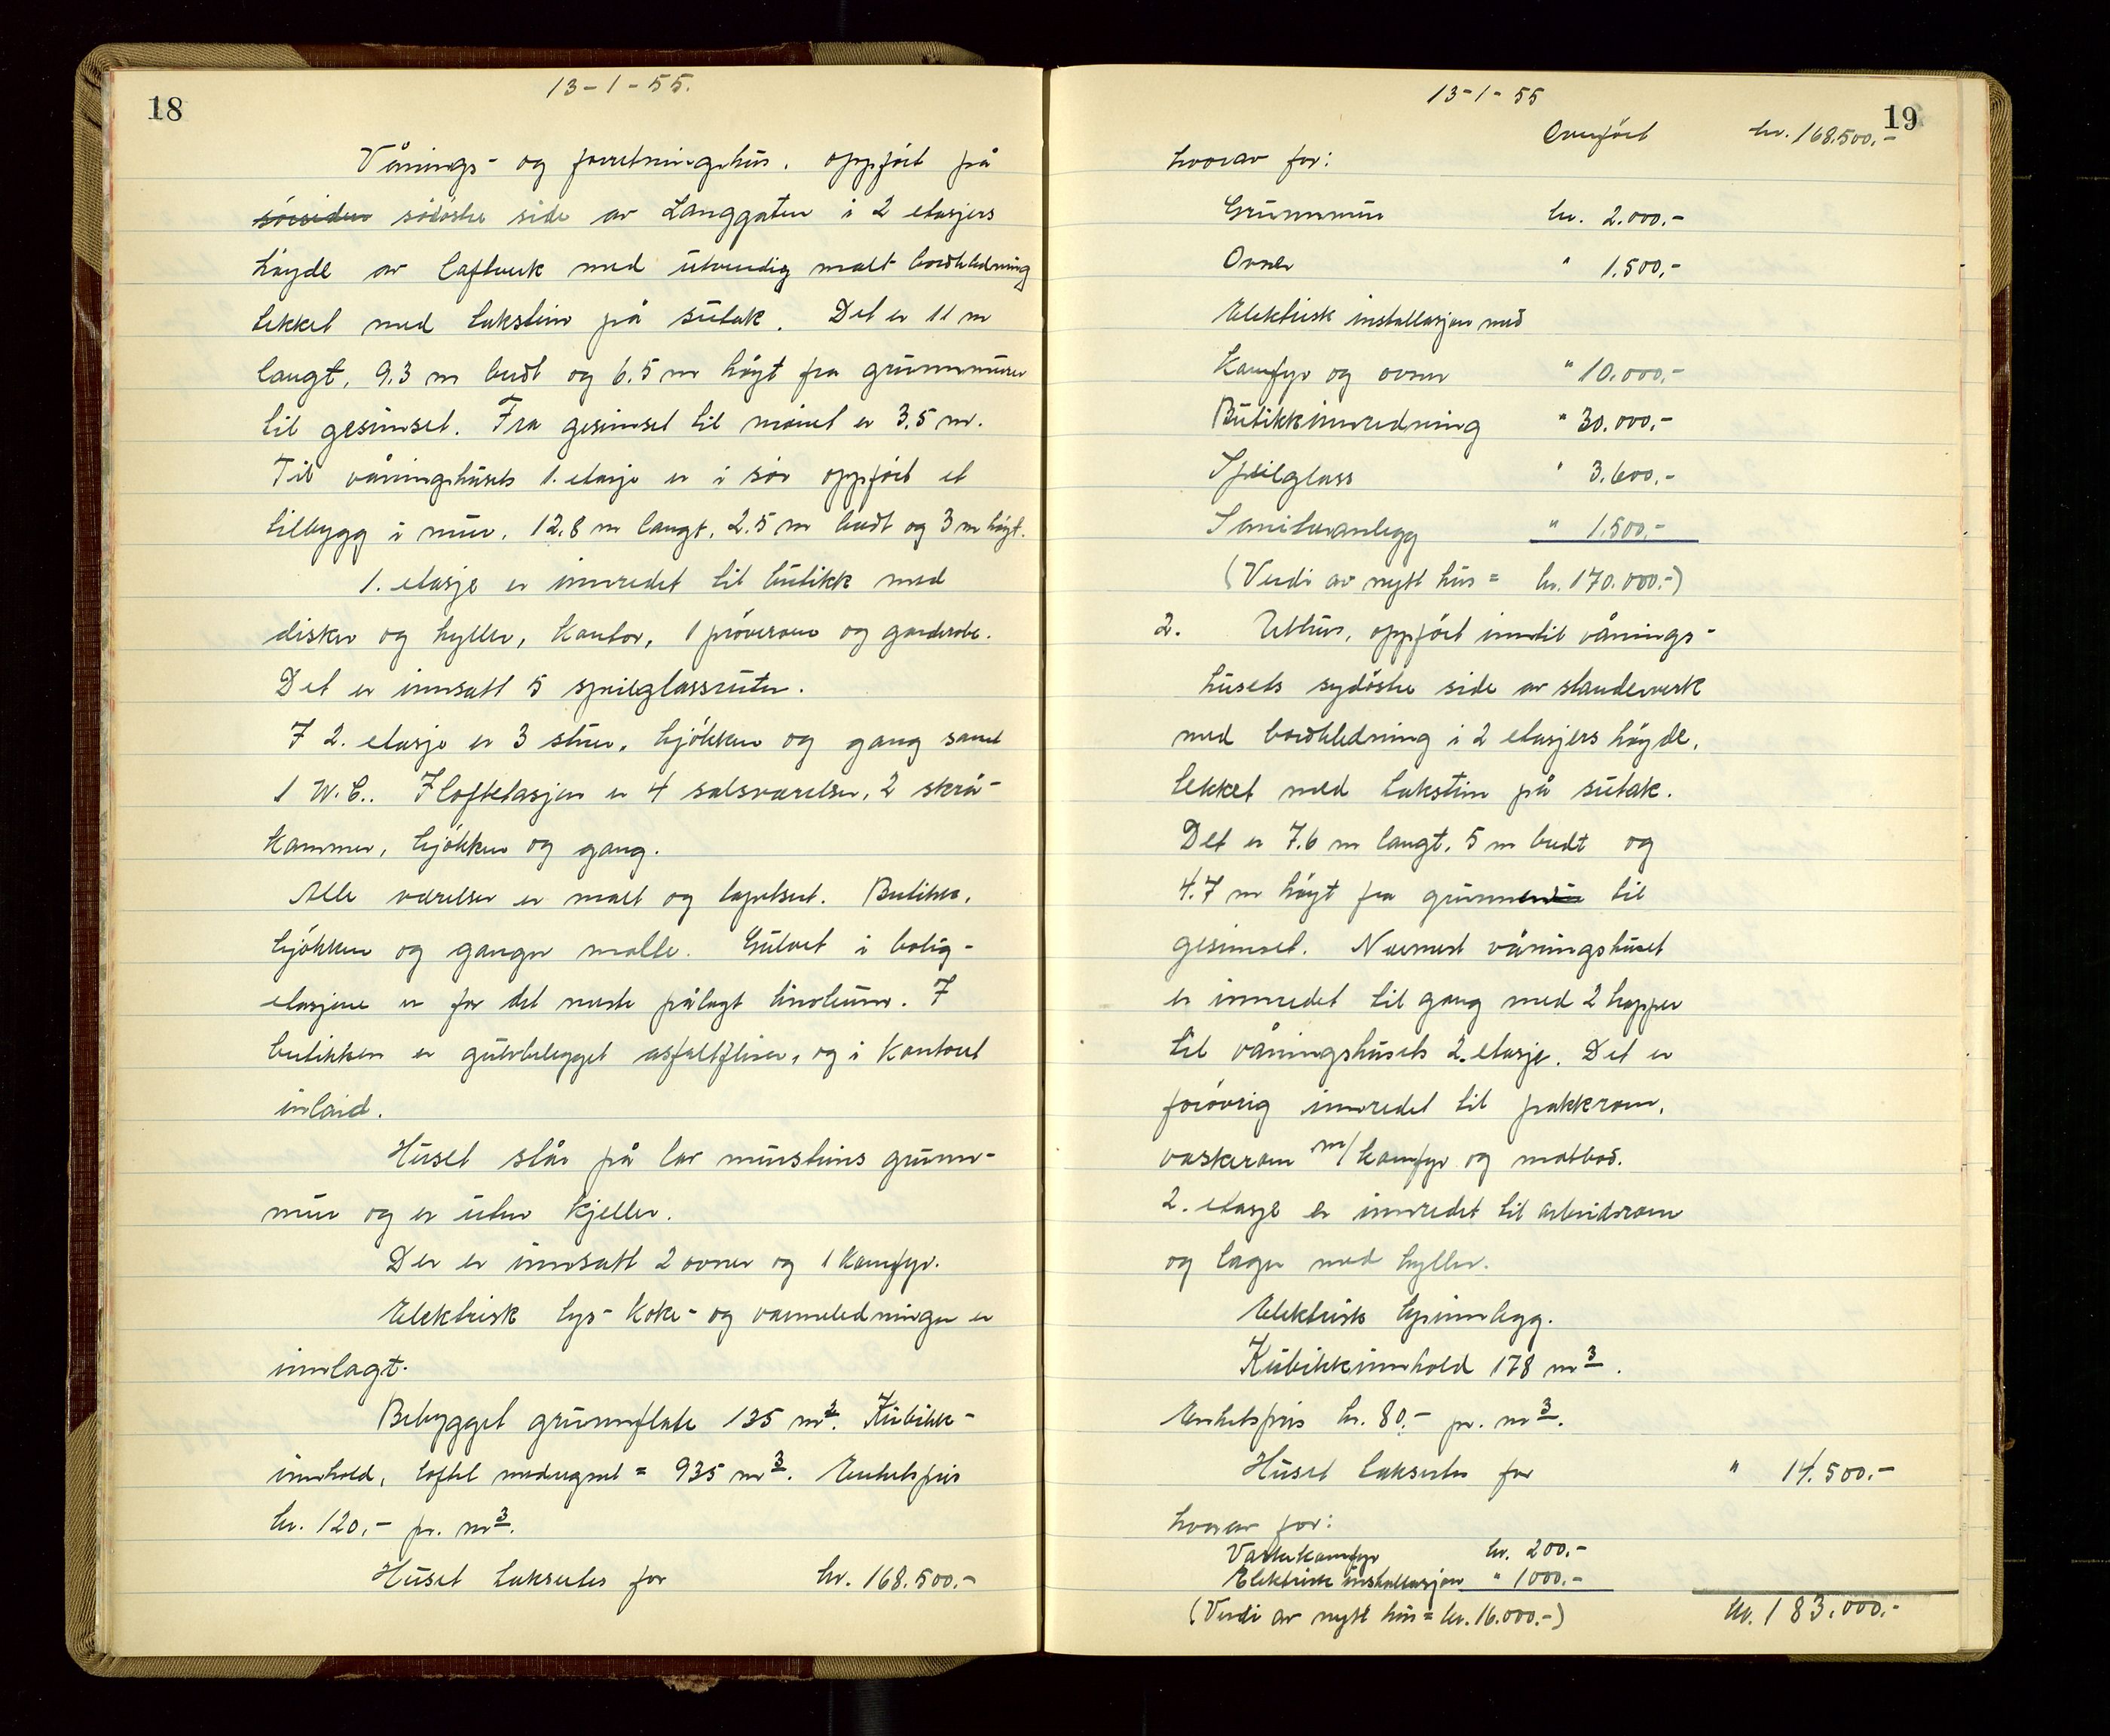 18
13-1-55.
Vånings- og forretningshus, oppført på
sørsiden sødøstre side av Langgaten i 2 etasjers
høyde av lafteverk med utvendig malt bordkledning
tekket med takstein på sutak. Det er 11 m
langt, 9.3 m bredt og 6.5 m høyt fra grunnmuren
til gesimset. Fra gesimset til mønet er 3,5 m.
Til våningshusets 1. etasje er i sør oppført et
tilbygg i mur, 12.8 m langt, 2.5 m bredt og 3 m høyt.
1. etasje er innredet til butikk med
disker og hyller, kontor, 1 prøverom og garderobe.
Det er innsatt 5 speilglassruter.
I 2. etasje er 3 stuer, kjøkken og gang samt
1 W.C.. I loftetasjen er 4 soveværelser, 2 skrå-
kammer, kjøkken og gang.
Alle værelser er malt og tapetsert. Butikken,
kjøkken og ganger malte. Gulvet i bolig-
etasjene er for det meste pålagt linoleum. I
butikken er gulvbelegget asfaltfliser, og i kontoret
inlaid.
Huset står på lav murstens grunn-
mur og er uten kjeller.
Der er innsatt 2 ovner og 1 komfyr.
Elektrisk lys- koke- og varmeledninger er
innlagt.
Bebygget grunnflate 135 m². Kubikk-
innhold, loftet medregnet = 935 m³. Enhetspris
kr. 120,- pr. m³.
Huset takseres for kr. 168.500.-
19
13-1-55
Overført kr. 168.500,-
hvorav for:
Grunnmur kr. 2.000.-
Ovner " 1.500,-
Elektrisk installasjon med
Komfyr og ovner " 10.000,-
Butikkinnredning " 30.000,-
Speilglass " 3.600,-
Sanitæranlegg " 1.500,-
(Verdi av nytt hus = kr. 170.000.-)
2. Uthus, oppført inntil vånings-
husets sydøstre side av standerverk
med bordkledning i 2 etasjers høyde,
tekket med takstein på sutak.
Det er 7.6 m langt, 5 m bredt og
4.7 m høyt fra grunnen til
gesimset. Nærmest våningshuset
er innredet til gang med 2 trapper
til våningshusets 2. etasje. Det er
forøvrig innredet til pakkrom,
vaskerom m/komfyr og matbod.
2. etasje er innredet til arbeidsrom
og lager med hyller.
Elektrisk lysinnlegg.
Kubikkinnhold 178 m³.
Enhetspris kr. 80.- pr. m³.
Huset takseres for " 14.500.-
hvorav for:
Vaskekomfyr kr. 200.-
Elektrisk installasjon " 1000.-
(Verdi av nytt hus = kr. 16.000.-) kr. 183.000.-